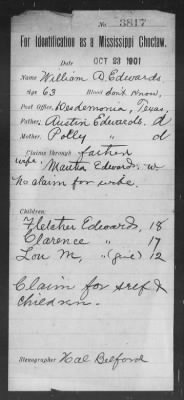 No. 3817
For Identification as a Mississippi Choctaw.
Date OCT 23 1901
Name William D. Edwards.
Age 63 Blood don't know,
Post Office, Desdemonia, Texas,
Father, Austin Edwards. d
Mother. Polly " d
Claims through father
wife, Martha Edwards. w
No claim for wife.
Children:
Fletcher Edwards, 18
Clarence " 17
Lou M, " (girl) 12
Claim for self &
children.
Stenographer Hal Belford